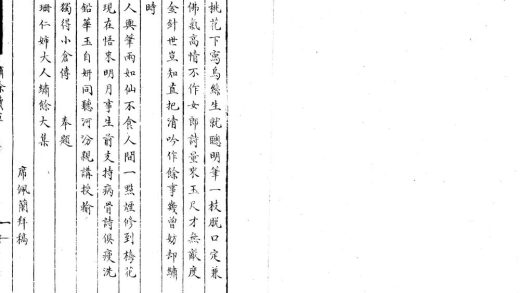 桃花下寫烏絲生就聰明筆一枝脫口定兼
佛氣高情不作女郎詩量來玉尺才無敵度
金針世豈知直把清吟作餘事幾曾妨却繡
時
人與筆兩如仙不食人間一點煙修到梅花
現在悟來明月事生前支持病骨詩俱瘦洗
鉛華玉自妍同聽河汾親講授輸
獨得小倉傳 奉題
珊仁姊大人繡餘大集
席佩蘭拜稿